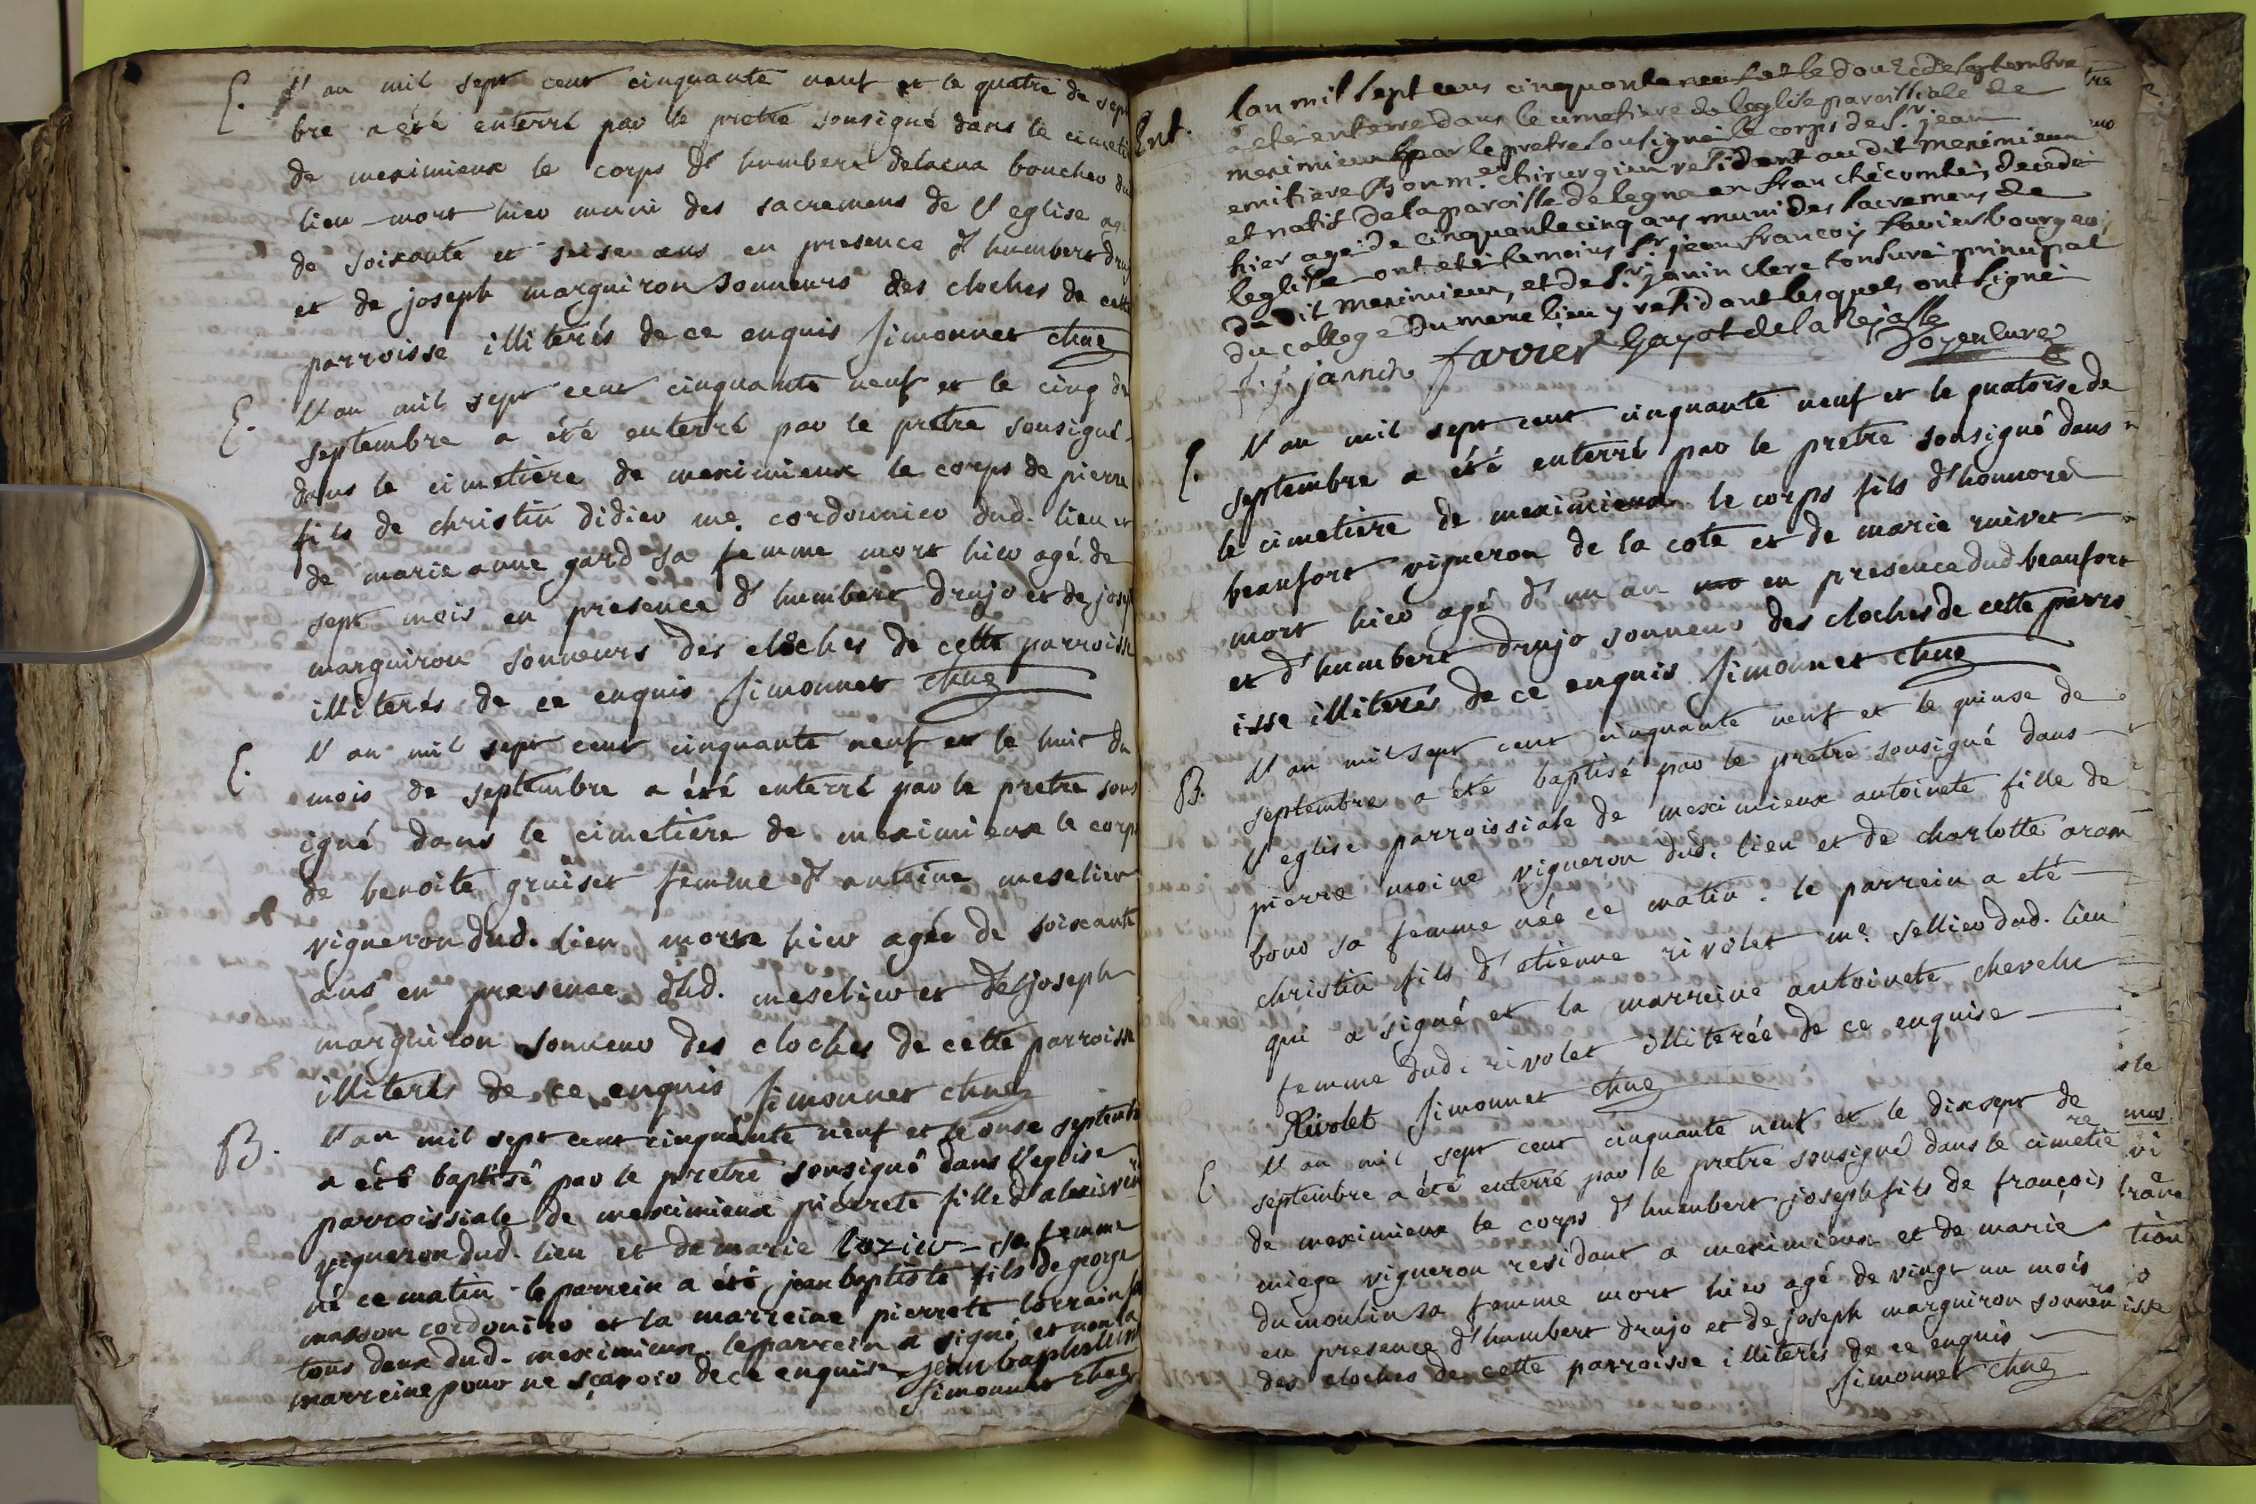 E. l'an mil sept cent cinquante neuf et le quatre de sep
bre a été enterré par le pretre sousigné dans le cimeti
de meximieux le corps d'humbert delacua boucher du
lieu mort hier muni des sacremens de l'eglise agé
de soixante et seise ans en presence d'humbert druj
et de joseph marguiron sonneurs des cloches de cette
parroisse illiterés de ce enquis Simonnet chne
E. l'an mil sept cent cinquante neuf et le cinq de
septembre a été enterré par le pretre sousigné
dans le cimetiere de meximieux le corps de pierre
fils de christin didier me. cordonnier dud. lieu et
de marie anne gard sa femme mort hier agé de
sept mois en presence d'humbert drujo et de josep
marguiron sonneurs des cloches de cette parroisse
illiterés de ce enquis Simonnet chne
E. l'an mil sept cent cinquante neuf et le huit du
mois de septembre a été enterré par le pretre sous
igné dans le cimetiere de meximieux le corp
de benoite gruiset femme d'antoine meselier
vigneron dud. lieu morte hier agée de soixante
ans en presence dud. meselier et de joseph
marguiron sonneur des cloches de cette parroisse
illiterés de ce enquis Simonnet chne
B. l'an mil sept cent cinquante neuf et le onse septemb
a été baptisé par le pretre sousigné dans l'eglise
parroissiale de meximieux pierrete fille d'alexis
vigneron dud. lieu et de marie lozier sa femme
né ce matin. le parrein a été jean baptiste fils de george
masson cordonier et la marreine pierrete lorrain
tous deux dud. meximieux. le parrein a signé et non la
marreine pour ne sçavoir de ce enquise jean baptiste
Simonnet chne
Ent. lan mil sept cens cinquante neuf et le douze de septembre
a eté enterré dans le cimetiere de leglise paroissiale de
meximieux par le pretre sousigné le corps de Sr. jean
me. chirurgien residant au dit meximieux
et natif de la paroisse de legna en franche comté, decedé
hier agé de cinquante cinq ans muni des sacremens de
leglise ont eté temoins Sr. jean françois favier bourgeois
du dit meximieux, et de Sr. janin clerc tonsuré principal
du college du meme lieu y residant lesquels ont signé
f. j. jannin farrier Gayot de la Rejasse
Doyen Curé
E. l'an mil sept cent cinquante neuf et le quatorse de
septembre a été enterré par le pretre sousigné dans
le cimetiere de meximieux le corps fils d'honnoré
beaufort vigneron de la cote et de marie ruivet
mort hier agé d'un an en presence dud beaufort
et d'humbert drujo sonneur des cloches de cette parro
isse illiterés de ce enquis Simonnet chne
B. l'an mil sept cent cinquante neuf et le quinse de
septembre a été baptisé par le pretre sousigné dans
l'eglise parroissiale de meximieux antoinete fille de
pierre moine vigneron dud. lieu et de charlotte aram
bour sa femme née ce matin. le parrein a eté
christin fils d'etienne rivolet me. sellier dud. lieu
qui a signé et la marreine antoinete chevelu
femme dud. rivolet illiterée de ce enquise
Rivolet Simonnet chne
E. l'an mil sept cent cinquante neuf et le dixsept de
septembre a été enterré par le pretre sousigné dans le cimetie re
de meximieux le corps d'humbert joseph fils de françois
miege vigneron residant a meximieux et de marie
dumoulin sa femme mort hier agé de vingt un mois
en presence d'humbert drujo et de joseph marguiron sonneurs
des cloches de cette parroisse illiterés de ce enquis
Simonnet chne